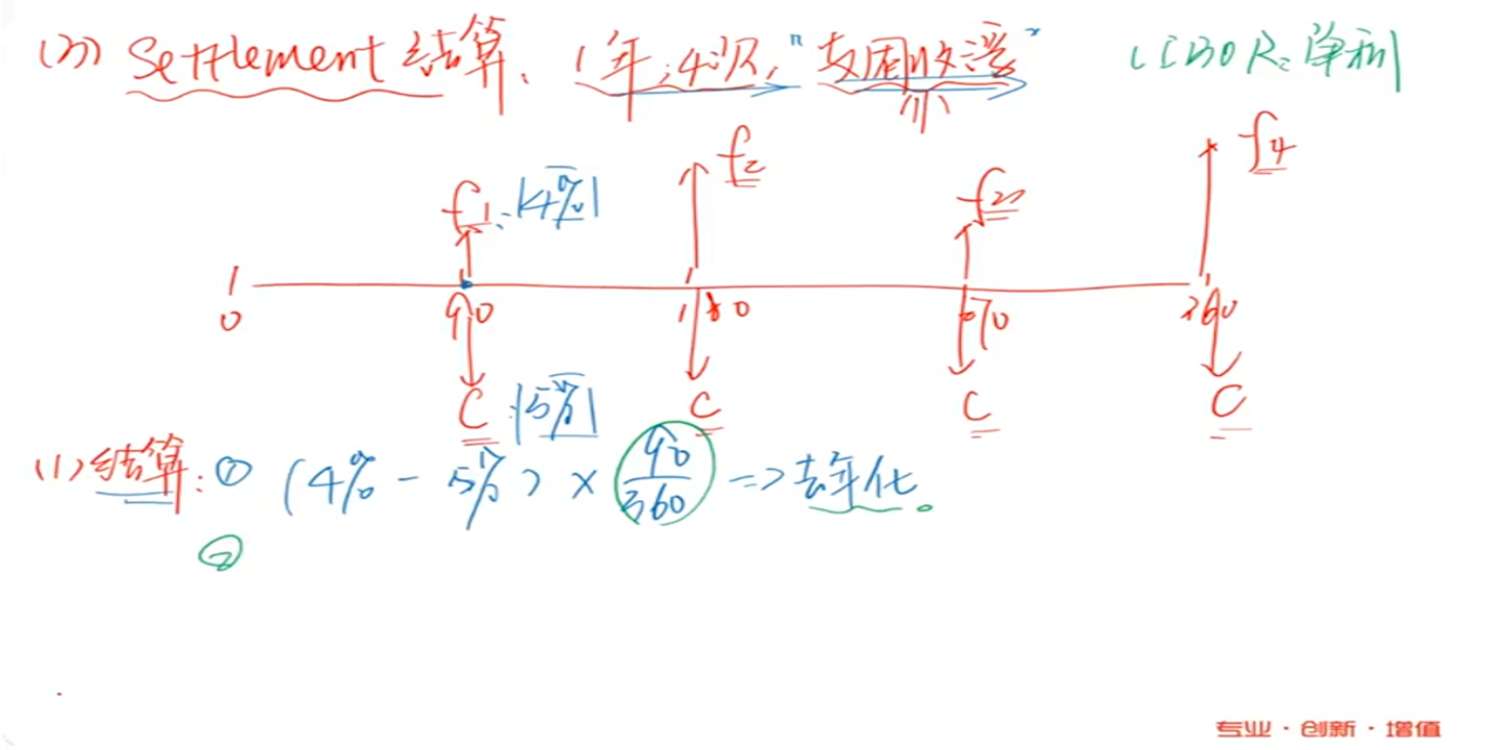 (3) Settlement 结算、1年,4次,"支固收浮" LIBOR:单利
f1:|4%| f2 f3 f4
0 90 180 270 360
C:|5%| C C C
(1)结算:① (4% - 5%) × 90/360 => 去年化。
②
专业·创新·增值